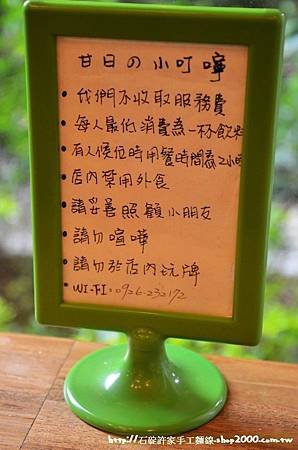 甘日の小叮嚀
• 我們不收取服務費
• 每人最低消費為一杯飲料
• 有人候位時用餐時間為2小時
• 店內禁用外食
• 請妥善照顧小朋友
• 請勿喧嘩
• 請勿於店內玩牌
• WI-FI:0926-232172
http://石碇許家手工麵線.shop2000.com.tw